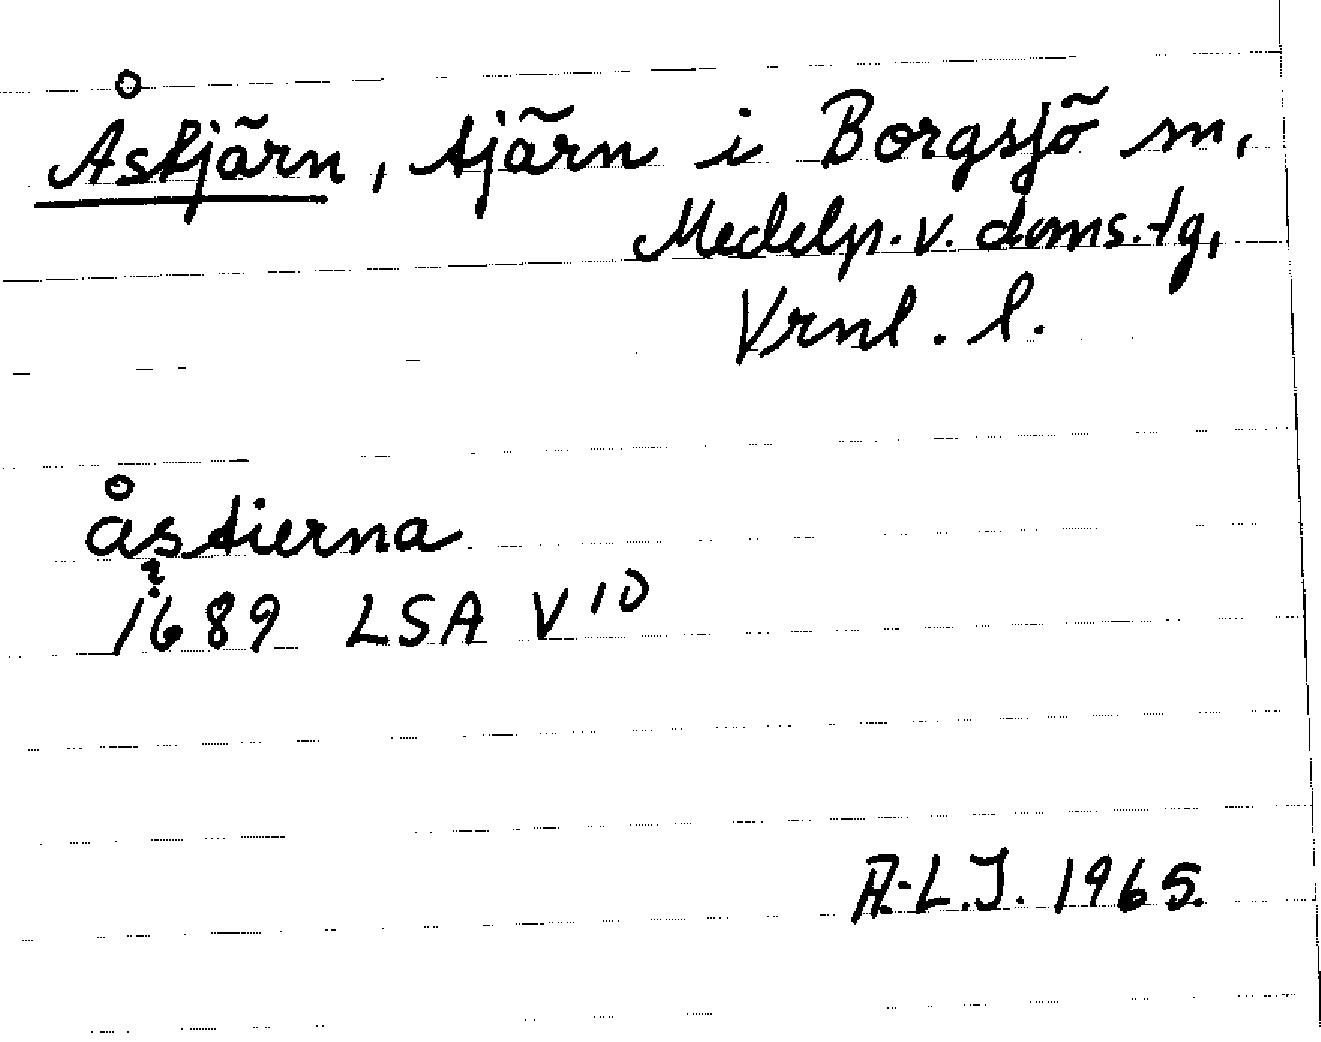 Åstjärn, tjärn i Borgsjö sn,
Medelp. v. doms. tg,
Vrnl. l.
åstierna
?
1689 LSA V 10
A.-L.J. 1965.